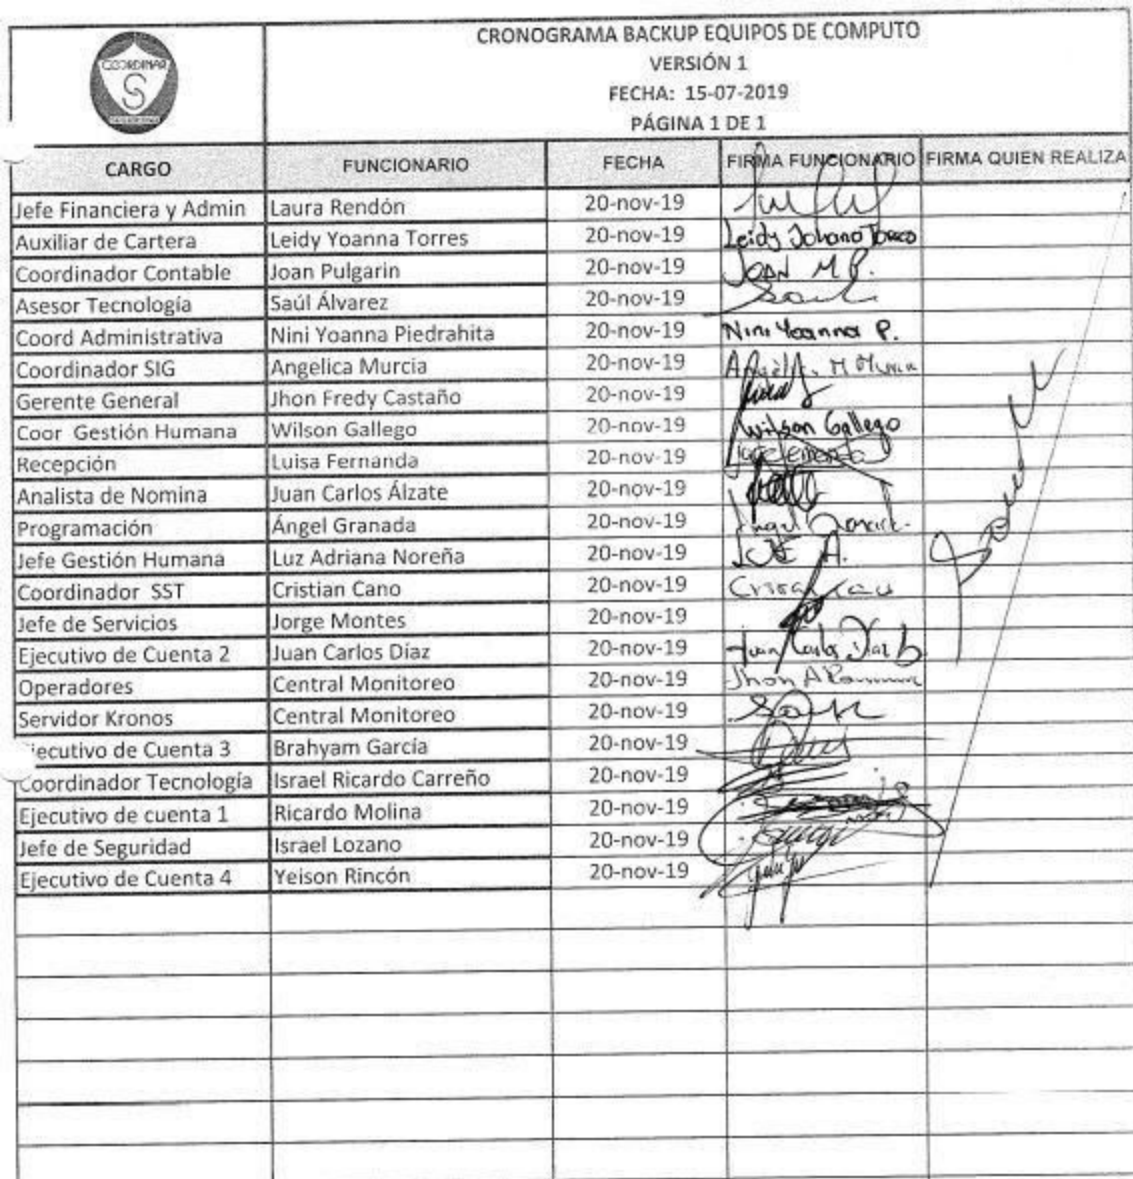 COORDINAR
CRONOGRAMA BACKUP EQUIPOS DE COMPUTO
VERSIÓN 1
FECHA: 15-07-2019
PÁGINA 1 DE 1
CARGO FUNCIONARIO FECHA FIRMA FUNCIONARIO FIRMA QUIEN REALIZA
Jefe Financiera y Admin Laura Rendón 20-nov-19
Auxiliar de Cartera Leidy Yoanna Torres 20-nov-19 Leidy Johana Torres
Coordinador Contable Joan Pulgarin 20-nov-19 JOAN M P.
Asesor Tecnología Saúl Álvarez 20-nov-19
Coord Administrativa Nini Yoanna Piedrahita 20-nov-19 Nini Yoanna P.
Coordinador SIG Angelica Murcia 20-nov-19
Gerente General Jhon Fredy Castaño 20-nov-19
Coor Gestión Humana Wilson Gallego 20-nov-19 Wilson Gallego
Recepción Luisa Fernanda 20-nov-19
Analista de Nomina Juan Carlos Álzate 20-nov-19
Programación Ángel Granada 20-nov-19
Jefe Gestión Humana Luz Adriana Noreña 20-nov-19
Coordinador SST Cristian Cano 20-nov-19
Jefe de Servicios Jorge Montes 20-nov-19
Ejecutivo de Cuenta 2 Juan Carlos Díaz 20-nov-19 Juan Carlos Díaz
Operadores Central Monitoreo 20-nov-19
Servidor Kronos Central Monitoreo 20-nov-19
jecutivo de Cuenta 3 Brahyam García 20-nov-19
Coordinador Tecnología Israel Ricardo Carreño 20-nov-19
Ejecutivo de cuenta 1 Ricardo Molina 20-nov-19
Jefe de Seguridad Israel Lozano 20-nov-19
Ejecutivo de Cuenta 4 Yeison Rincón 20-nov-19